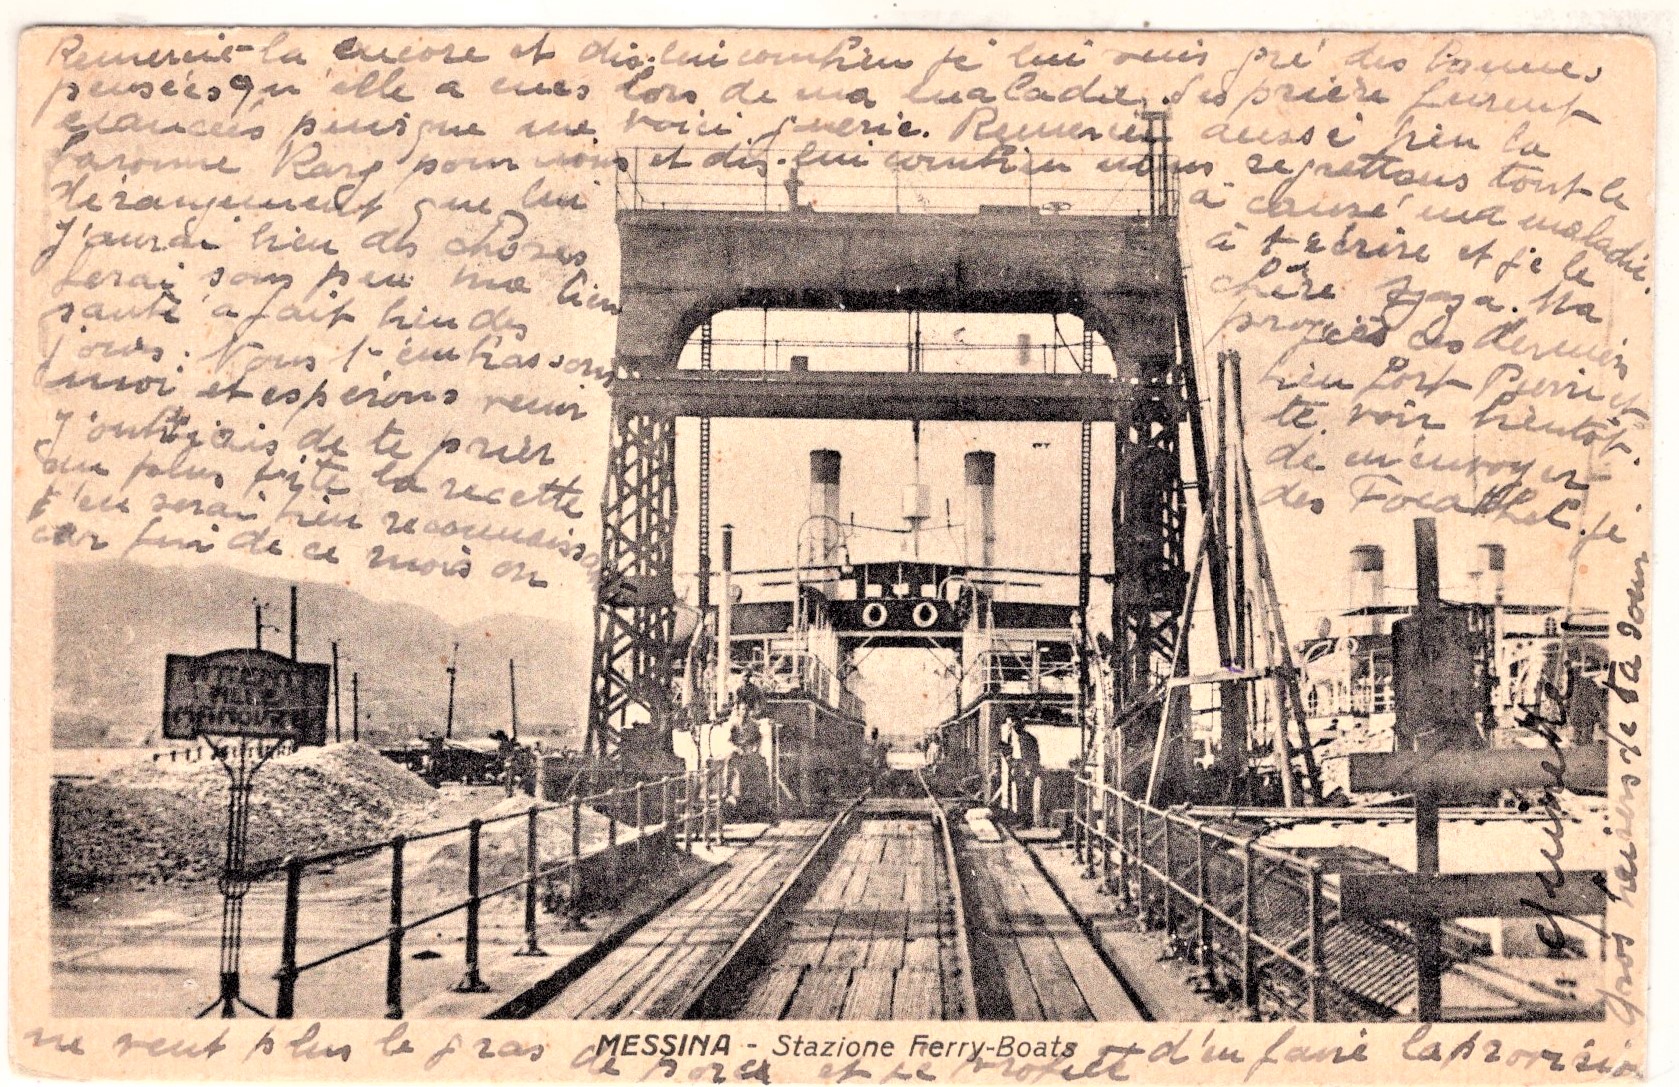 Remercie-la encore et dis-lui combien je lui suis gré des bonnes
pensées qu'elle a eues lors de ma maladie, ses prière furent
exaucées puisque me voici guérie. Remercie aussi bien la
baronne Karg pour nous et dis-lui combien nous regrettons tout le
dérangement que lui a causé ma maladie.
J'aurai bien des choses à t'écrire et je le
ferai sous peu ma bien chère Ma
santé a fait bien des progrès ces derniers
jours. Nous t'embrassons bien fort Pierre et
moi et espérons venir te voir bientôt.
J'oubliais de te prier de m'envoyer
au plus vite la recette des je
t'en serai bien reconnaissante
car fin de ce mois on
ne vent plus le gras de porc et je d'en faire la provision
Gros baisers de ta soeur
MESSINA - Stazione Ferry-Boats
ATTENTI
ALLE
MANOVRE